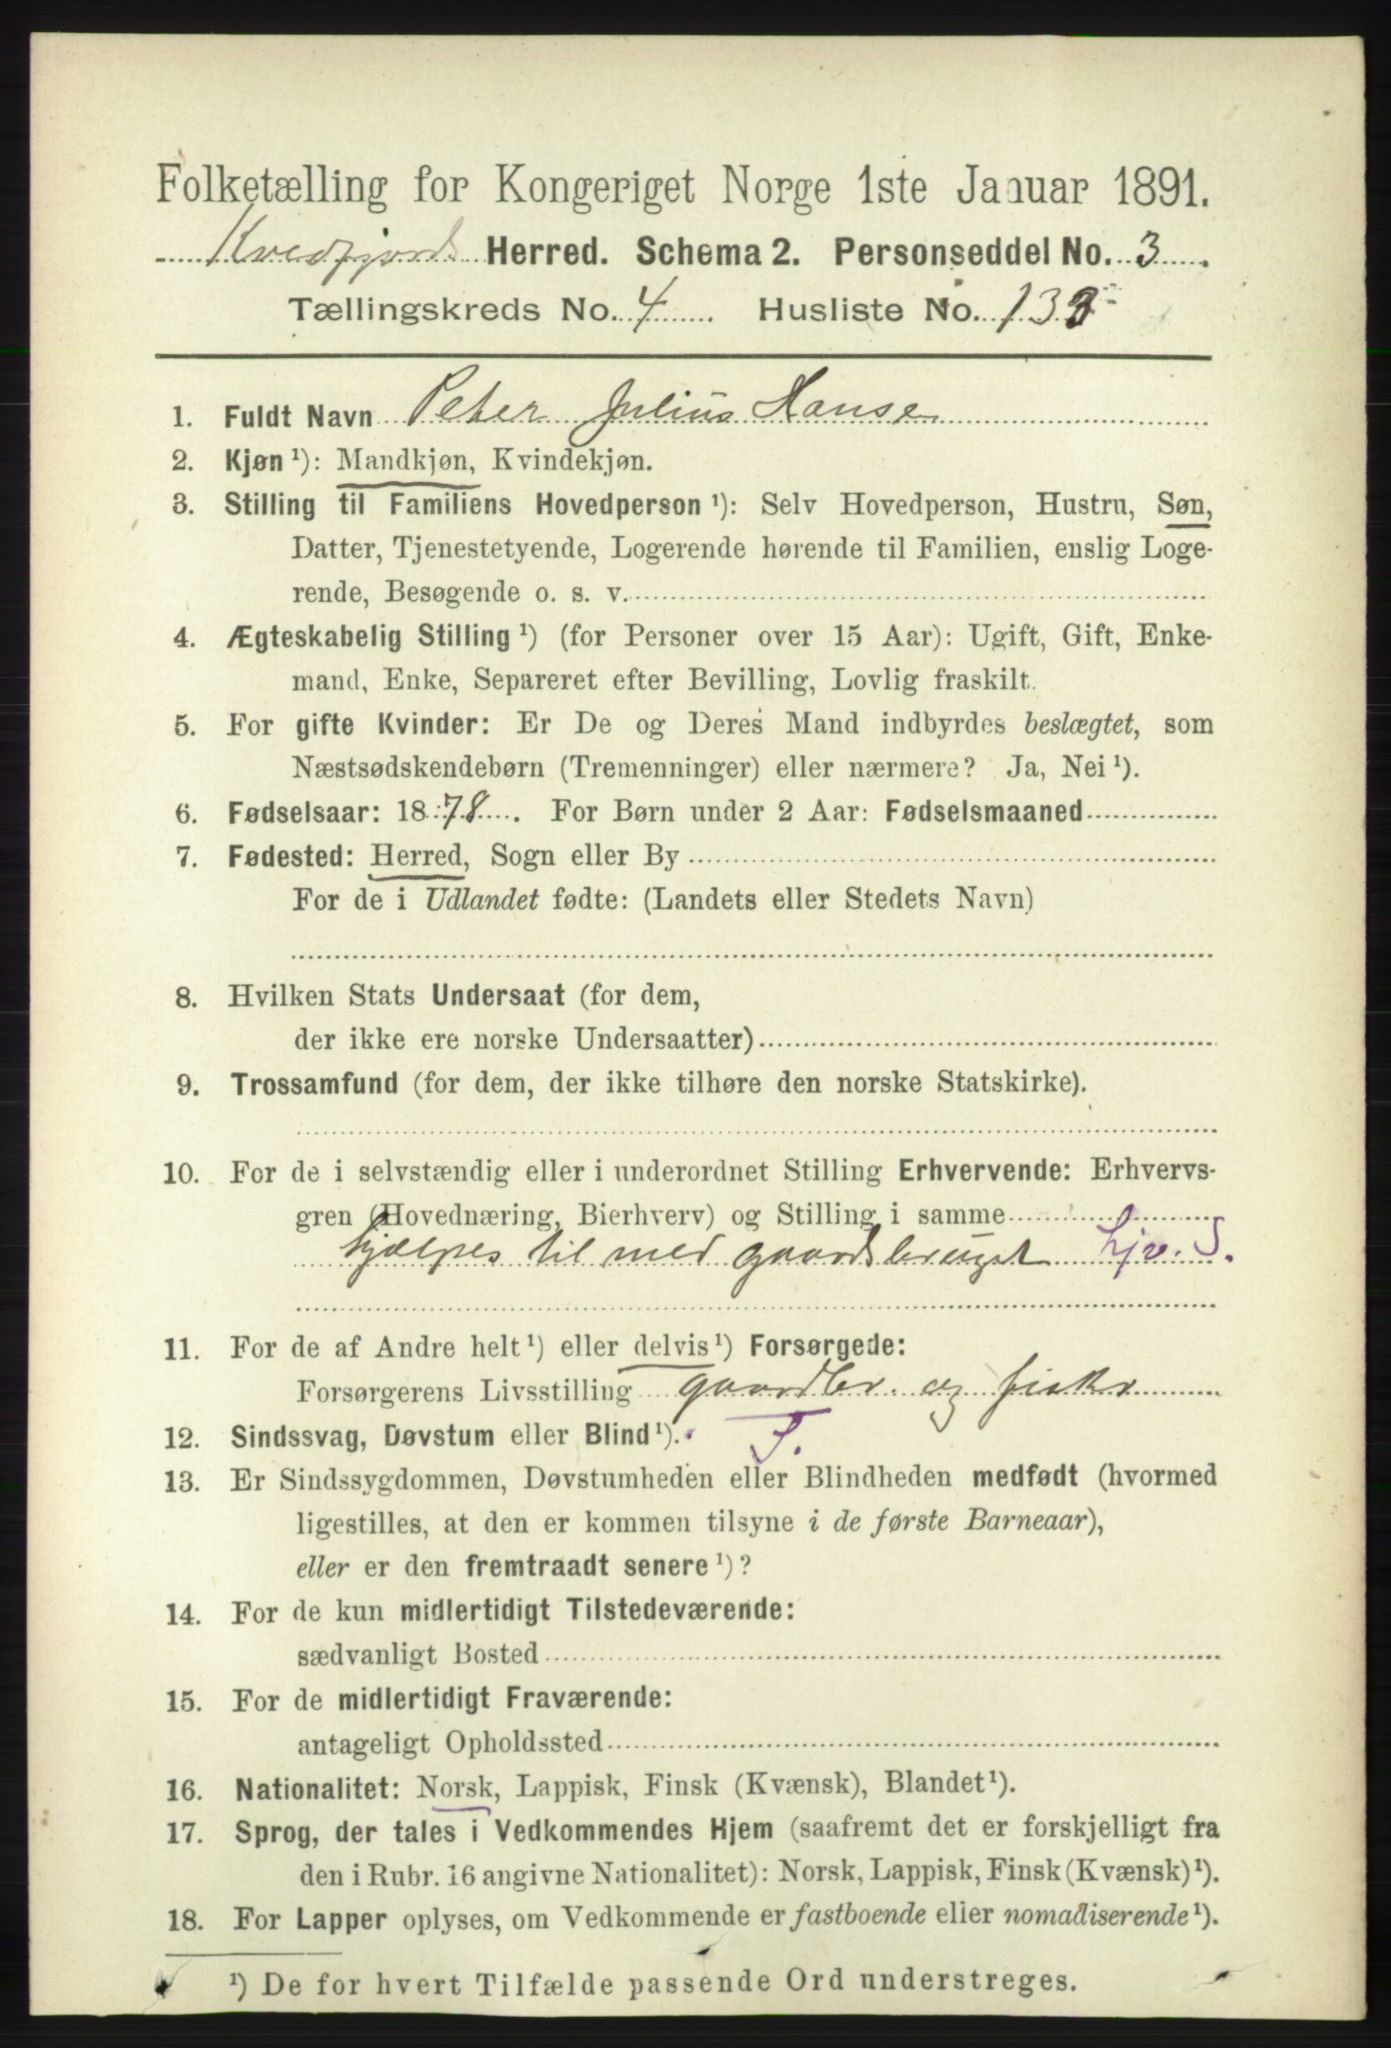 Folketælling for Kongeriget Norge 1ste Januar 1891.
Kvedfjord Herred. Schema 2. Personseddel No. 3
Tællingskreds No. 4 Husliste No. 133
1. Fuldt Navn Peter Julius Hansen
2. Kjøn ¹): Mandkjøn, Kvindekjøn.
3. Stilling til Familiens Hovedperson ¹): Selv Hovedperson, Hustru, Søn,
Datter, Tjenestetyende, Logerende hørende til Familien, enslig Loge-
rende, Besøgende o. s. v.
4. Ægteskabelig Stilling ¹) (for Personer over 15 Aar): Ugift, Gift, Enke-
mand, Enke, Separeret efter Bevilling, Lovlig fraskilt.
5. For gifte Kvinder: Er De og Deres Mand indbyrdes beslægtet, som
Næstsødskendebørn (Tremenninger) eller nærmere? Ja, Nei ¹).
6. Fødselsaar: 1878. For Børn under 2 Aar: Fødselsmaaned
7. Fødested: Herred, Sogn eller By
For de i Udlandet fødte: (Landets eller Stedets Navn)
8. Hvilken Stats Undersaat (for dem,
der ikke ere norske Undersaatter)
9. Trossamfund (for dem, der ikke tilhøre den norske Statskirke).
10. For de i selvstændig eller i underordnet Stilling Erhvervende: Erhvervs-
gren (Hovednæring, Bierhverv) og Stilling i samme
hjælpes til med gaardsbruget Hjv. S.
11. For de af Andre helt ¹) eller delvis ¹) Forsørgede:
Forsørgerens Livsstilling gaardbr. og fisker
12. Sindssvag, Døvstum eller Blind ¹). F.
13. Er Sindssygdommen, Døvstumheden eller Blindheden medfødt (hvormed
ligestilles, at den er kommen tilsyne i de første Barneaar),
eller er den fremtraadt senere ¹)?
14. For de kun midlertidigt Tilstedeværende:
sædvanligt Bosted
15. For de midlertidigt Fraværende:
antageligt Opholdssted
16. Nationalitet: Norsk, Lappisk, Finsk (Kvænsk), Blandet ¹).
17. Sprog, der tales i Vedkommendes Hjem (saafremt det er forskjelligt fra
den i Rubr. 16 angivne Nationalitet): Norsk, Lappisk, Finsk (Kvænsk) ¹).
18. For Lapper oplyses, om Vedkommende er fastboende eller nomadiserende ¹).
¹) De for hvert Tilfælde passende Ord understreges.